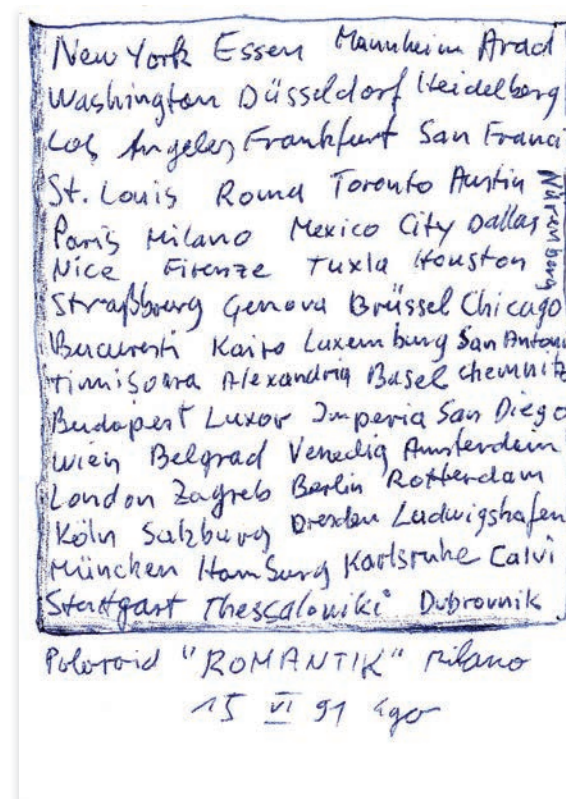 New York Essen Mannheim Arad
Washington Düsseldorf Heidelberg
Los Angeles Frankfurt San Franci
St. Louis Roma Toronto Austin
Nürenberg
Paris Milano Mexico City Dallas
Nice Firenze Tuxla Houston
Straßbourg Genova Brüssel Chicago
Bucuresti Kairo Luxemburg San Antoni
Timișoara Alexandria Basel Chemnitz
Budapest Luxor Imperia San Diego
Wien Belgrad Venedig Amsterdam
London Zagreb Berlin Rotterdam
Köln Salzburg Dresden Ludwigshafen
München Hamburg Karlsruhe Calvi
Stuttgart Thessaloniki Dubrovnik
Poloroid "ROMANTIK" Milano
15 VI 91 ego